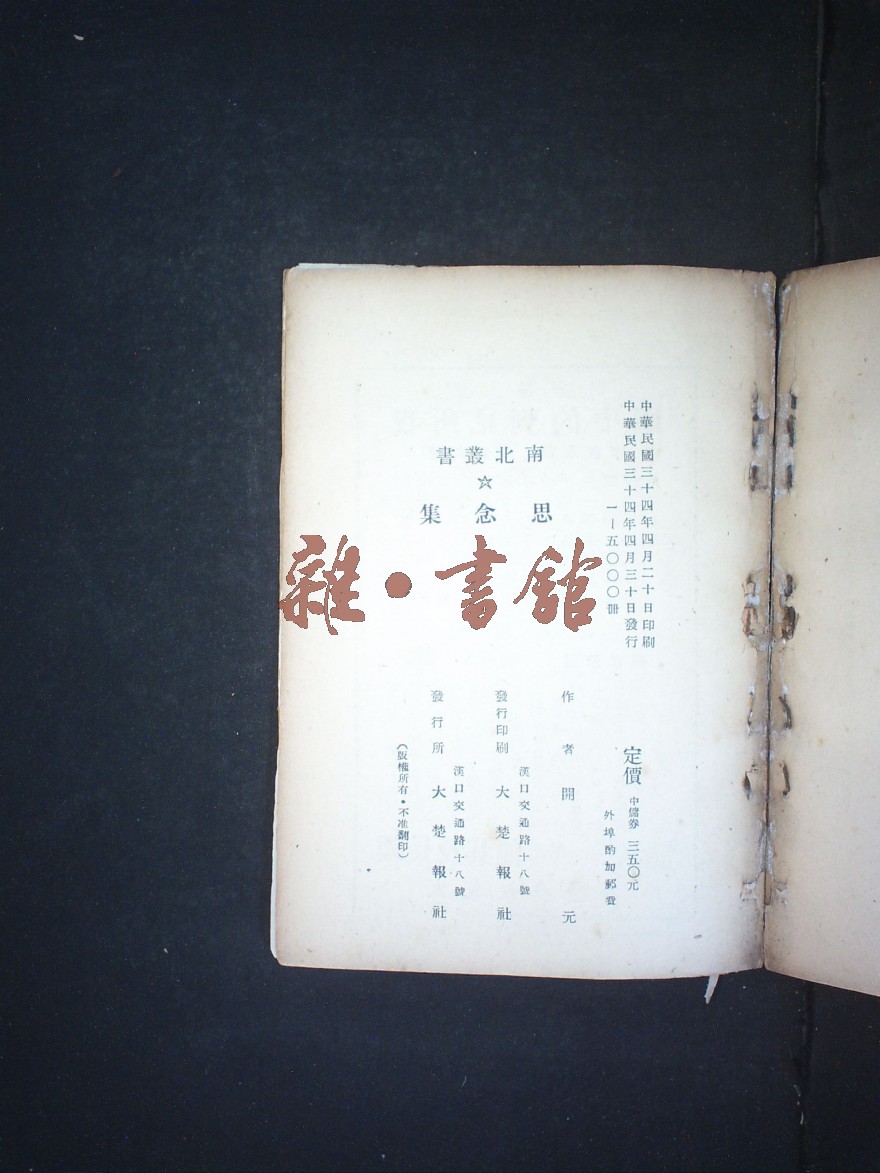 中華民國三十四年四月二十日印刷
中華民國三十四年四月三十日發行
一—五〇〇〇冊
南北叢書
☆
思念集
雜·書館
定價 中儲券 三五〇元
外埠酌加郵費
作者 開元
發行印刷 漢口交通路十八號 大楚報社
發行所 漢口交通路十八號 大楚報社
（版權所有·不准翻印）